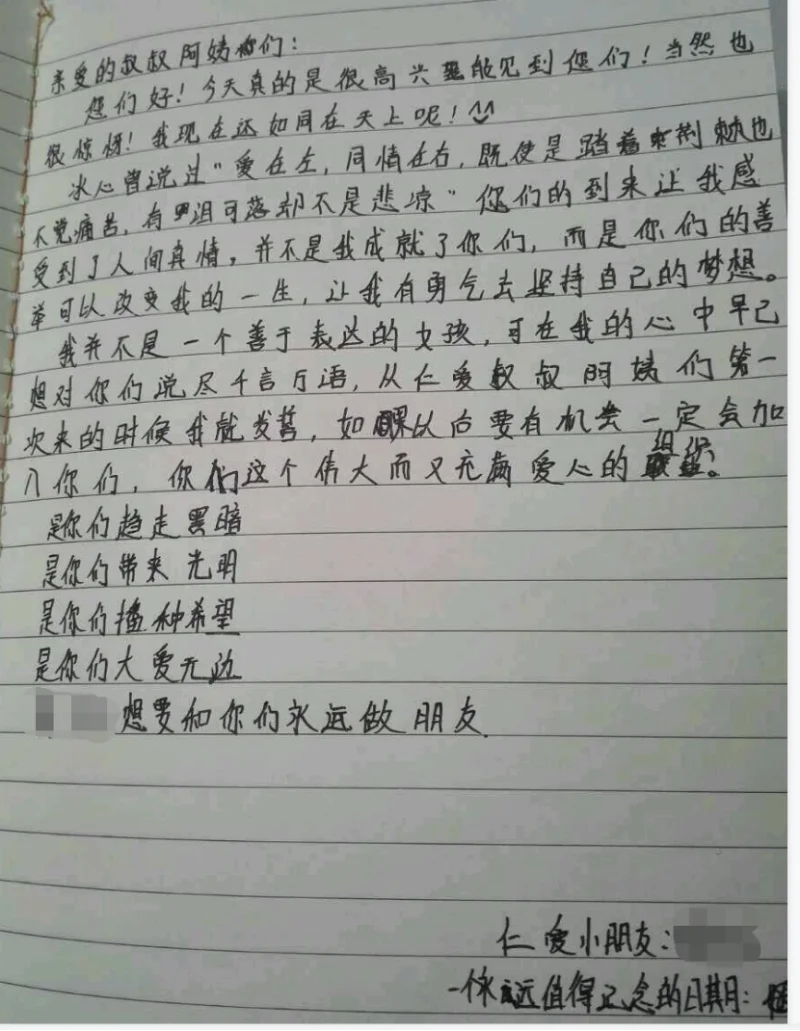 亲爱的叔叔阿姨你们：
您们好！今天真的是很高兴能见到您们！当然也
很惊讶！我现在还如同在天上呢！^^
冰心曾说过“爱在左，同情在右，既使是踏着荆棘也
不觉痛苦，有泪可落却不是悲凉”你们的到来让我感
受到了人间真情，并不是我成就了你们，而是你们的善
举可以改变我的一生，让我有勇气去坚持自己的梦想。
我并不是一个善于表达的女孩，可在我的心中早已
想对你们说尽千言万语，从仁爱叔叔阿姨们第一
次来的时候我就发誓，如果以后要有机会一定会加
入你们，你们这个伟大而又充满爱心的组织。
是你们趋走黑暗
是你们带来光明
是你们播种希望
是你们大爱无边
想要和你们永远做朋友
仁爱小朋友：
一个永远值得记念的日期：